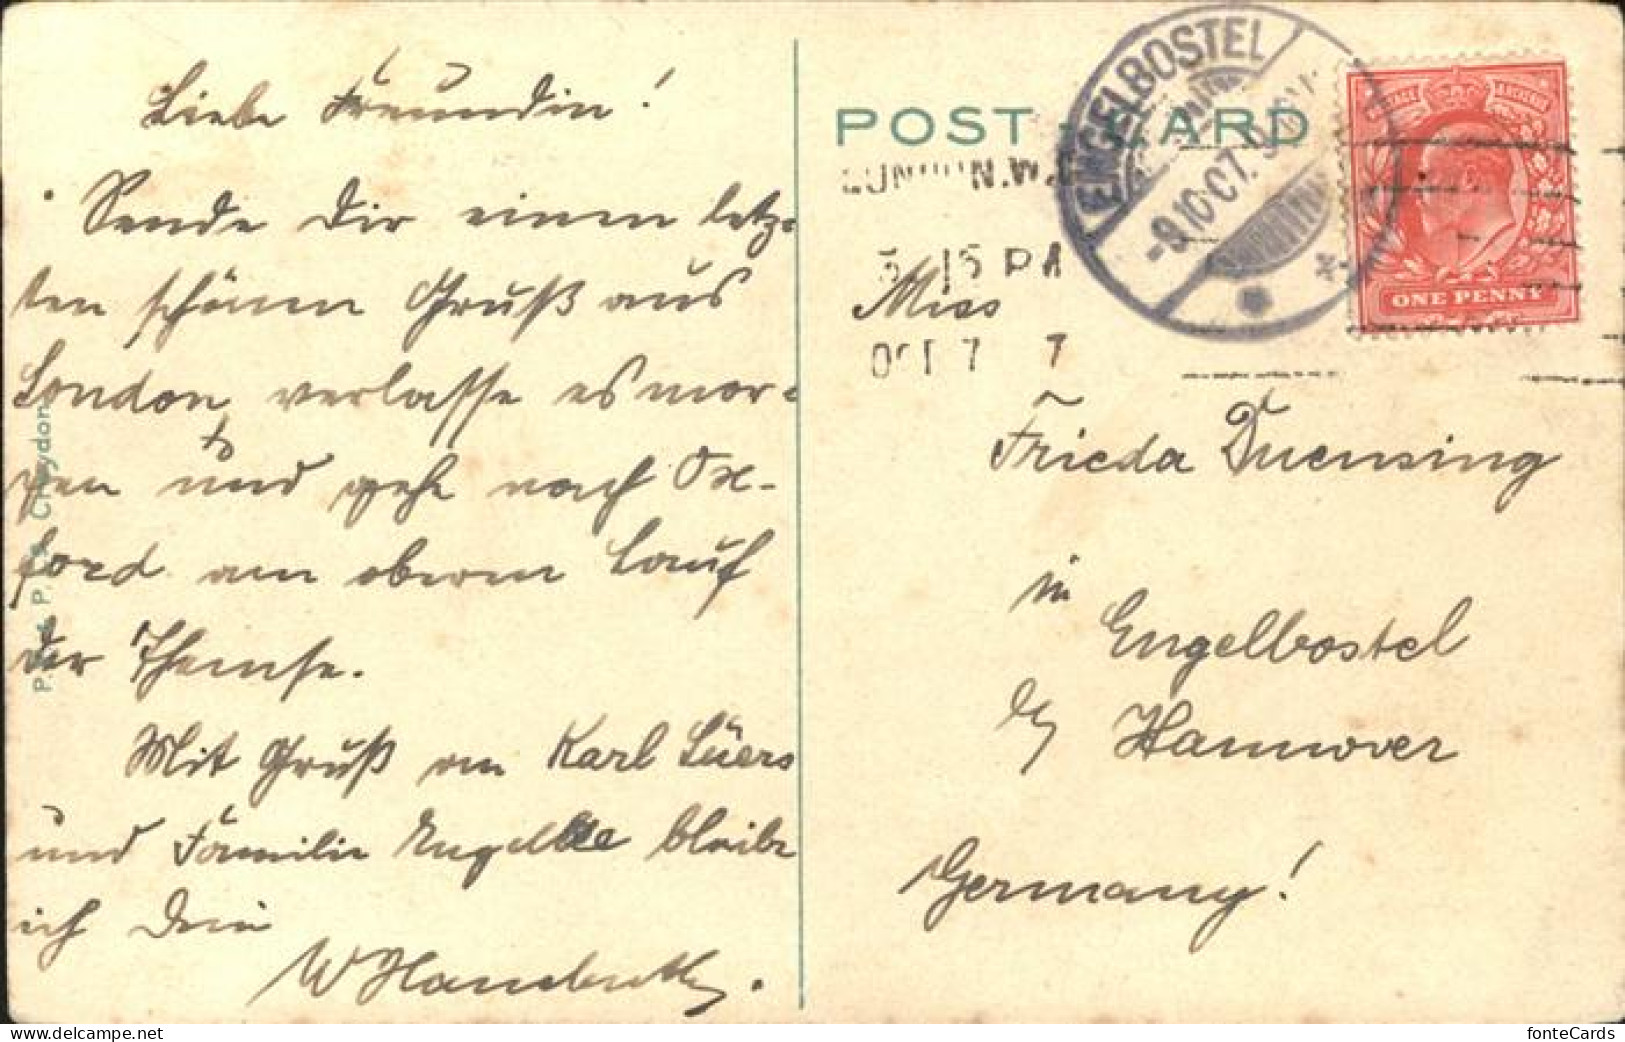 Liebe Freundin!
Sende Dir einen letz-
ten schönen Gruß aus
London, verlasse es mor-
gen und gehe nach Ox-
ford am oberen Lauf
der Themse.
Mit Gruß an Karl Lüers
und Familie Engelke bleibe
ich Dein
W
P. & P. Croydon
POST CARD
LONDON.W.
3 15 PM
OCT 7 7
ENGELBOSTEL
-9.10.07.
ONE PENNY
Miss
Frieda Duensing
in
Engelbostel
b/
Hannover
Germany!
www.delcampe.net
fonteCards